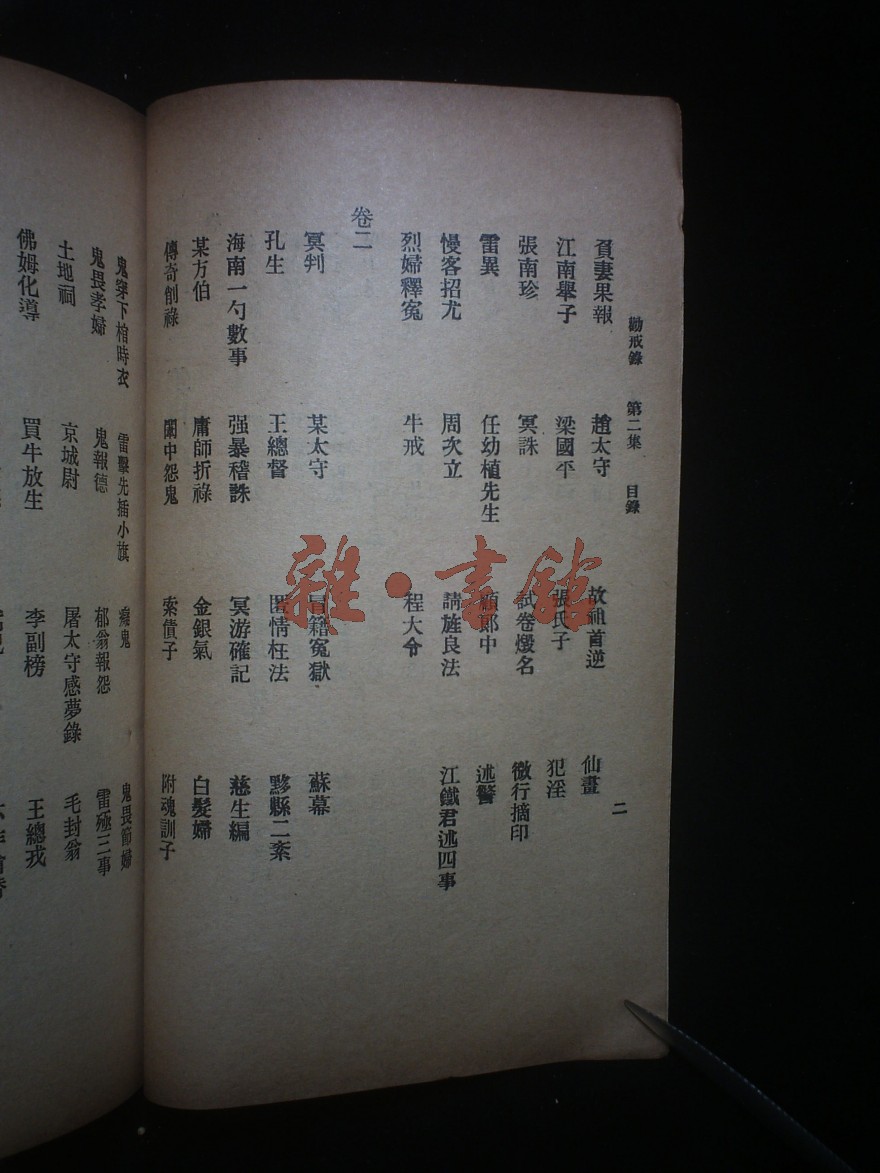 勸戒錄 第二集 目錄 二
負妻果報 趙太守 故祖首逆 仙畫
江南舉子 梁國平 張氏子 犯淫
張南珍 冥誅 試卷燬名 微行摘印
雷異 任幼植先生 顧郎中 述警
慢客招尤 周次立 請旌良法 江鐵君述四事
烈婦釋冤 牛戒 程大令
卷二
冥判 某太守 冒籍冤獄 蘇幕
孔生 王總督 匿情枉法 黟縣二案
海南一勺數事 强暴稽誅 冥游確記 慈生編
某方伯 庸師折祿 金銀氣 白髮婦
傳奇削祿 闈中怨鬼 索債子 附魂訓子
鬼穿下棺時衣 雷擊先插小旗 鬼 鬼畏節婦
鬼畏孝婦 鬼報德 郁翁報怨 雷殛三事
土地祠 京城尉 屠太守感夢錄 毛封翁
佛姆化導 買牛放生 李副榜 王總戎
雜·書館